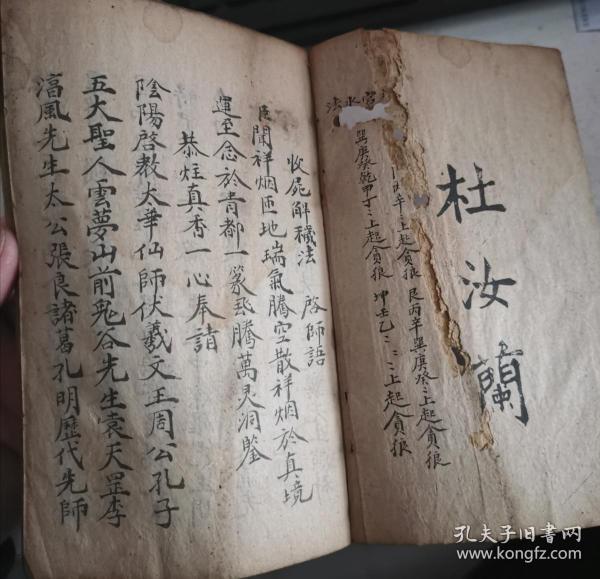 杜汝蘭
法水宮
艮丙辛巽庚癸〻上起貪狼
丙辛〻上起貪狼 坤壬乙〻〻上起貪狼
巽庚癸乾甲丁〻上起貪狼
收屍解穢法 啓師語
臣聞祥烟匝地瑞氣騰空散祥烟於真境
運至念於青都一篆飛騰萬灵洞鑒
恭炷真香一心奉請
陰陽啓教太華仙師伏羲文王周公孔子
五大聖人雲夢山前鬼谷先生袁天罡李
淳風先生太公張良諸葛孔明歷代先師
孔夫子旧书网
www.kongfz.com